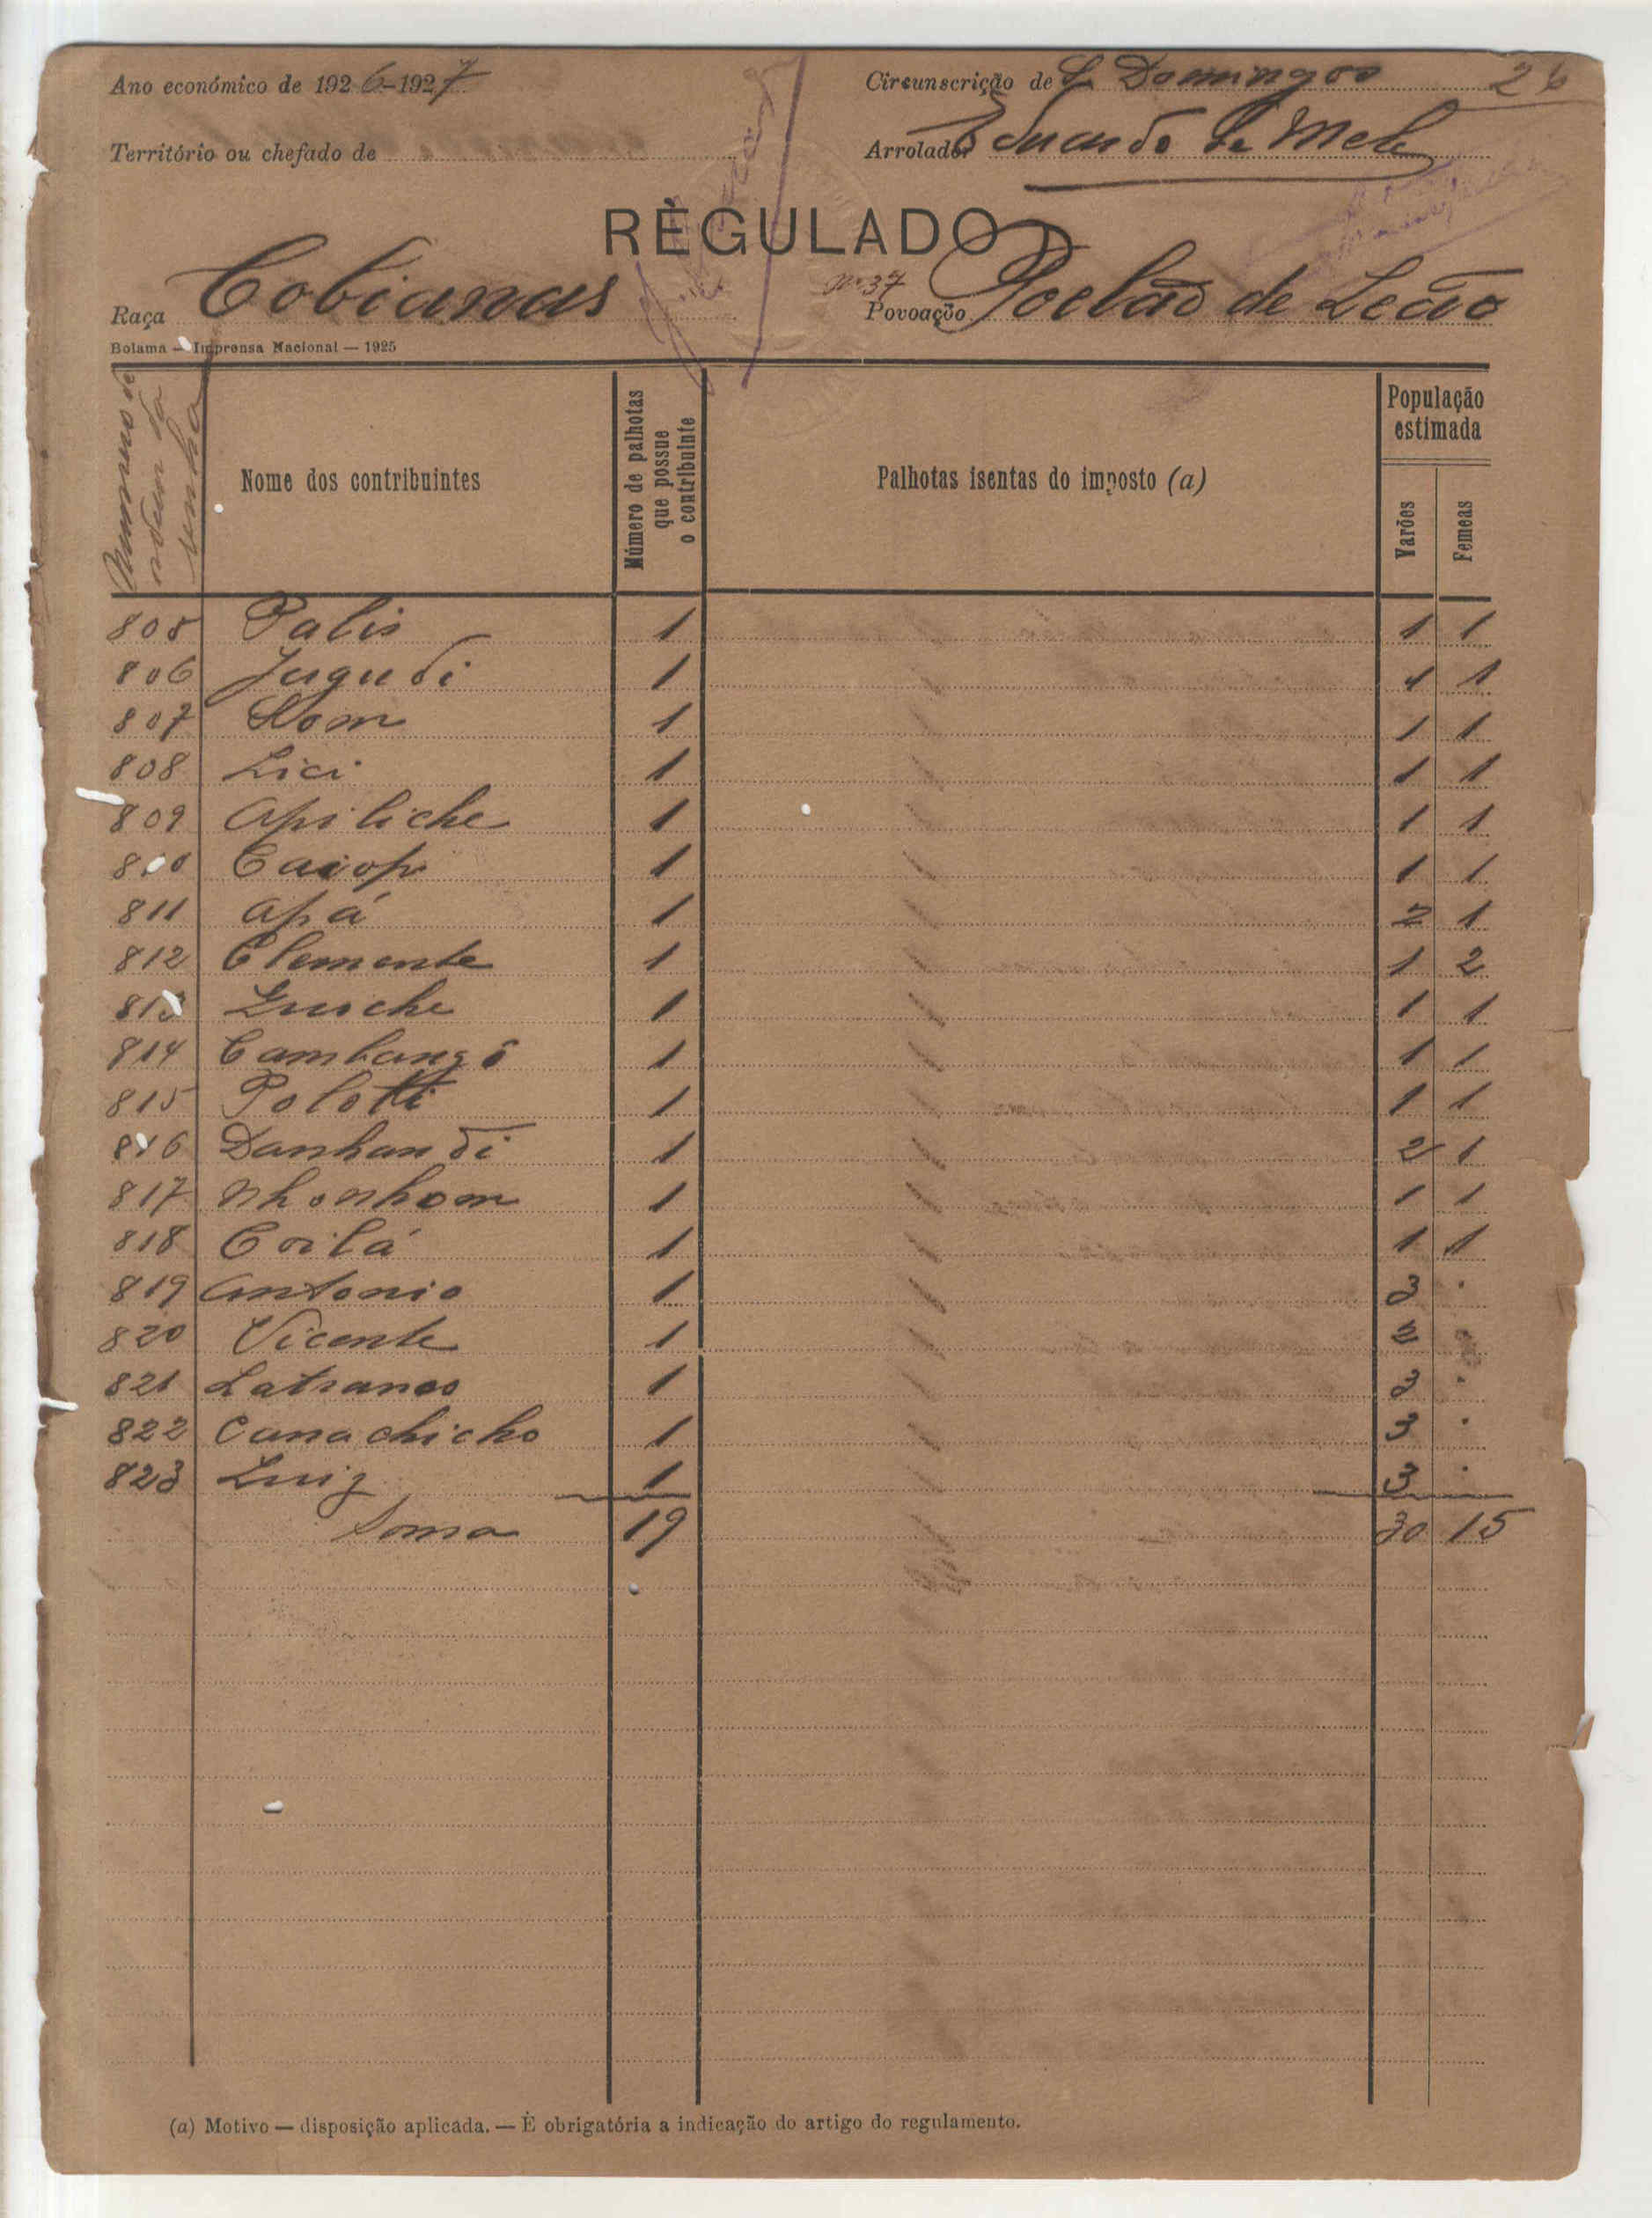 Ano económico de 1926-1927
Circunscrição de S. Domingos 26
Território ou chefado de
Arrolador Eduardo de Melo
RÈGULADO
Raça Cobianas
Nº 37
Povoação Poelão de Leão
Bolama — Imprensa Nacional — 1925
Numeros
ordem da
senha
Nome dos contribuintes
Número de palhotas
que possue
o contribuinte
Palhotas isentas do imposto (a)
População
estimada
Varões
Femeas
805 Palis 1 1 1
806 Jugudi 1 1 1
807 Kom 1 1 1
808 Lici 1 1 1
809 Apiliche 1 1 1
810 Caiop 1 1 1
811 Apá 1 2 1
812 Clemente 1 1 2
813 1 1 1
814 Cambangó 1 1 1
815 Polotti 1 1 1
816 Danhandi 1 2 1
817 Nhonhom 1 1 1
818 Coilá 1 1 1
819 Antonio 1 3 .
820 Vicente 1 2
821 1 3 .
822 Canachicho 1 3 .
823 Luiz 1 3 .
Soma 19 30 15
(a) Motivo — disposição aplicada. — É obrigatória a indicação do artigo do regulamento.